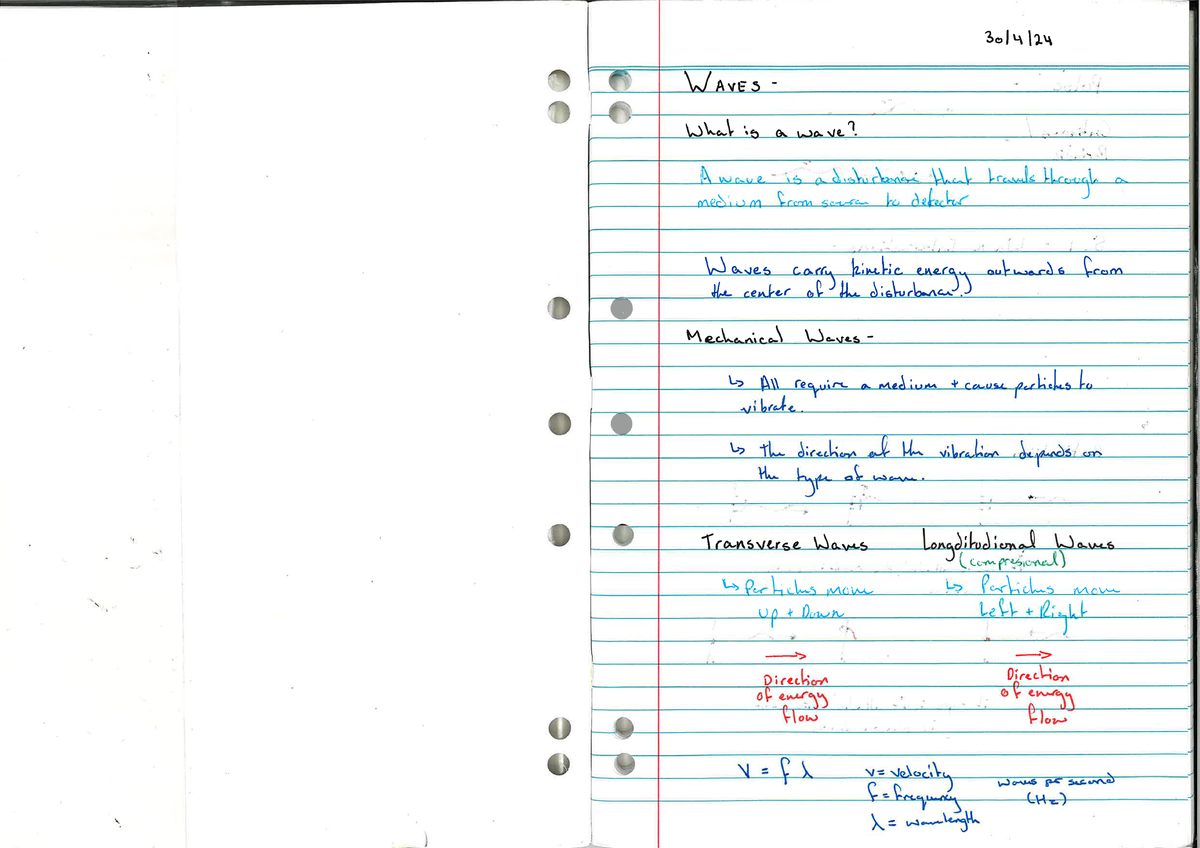 30/4/24
WAVES -
What is a wave?
A wave is a disturbance that travels through a
medium from source to detector
Waves carry kinetic energy outwards from
the center of the disturbance.
Mechanical Waves -
↳ All require a medium + cause particles to
vibrate.
↳ the direction of the vibration depends on
the type of wave.
Transverse Waves Longditudional Waves
(compresional)
↳ Particles move ↳ Particles move
Up + Down Left + Right
→ →
Direction Direction
of energy of energy
flow flow
V = f λ v = velocity
f = frequency waves per second
(Hz)
λ = wavelength